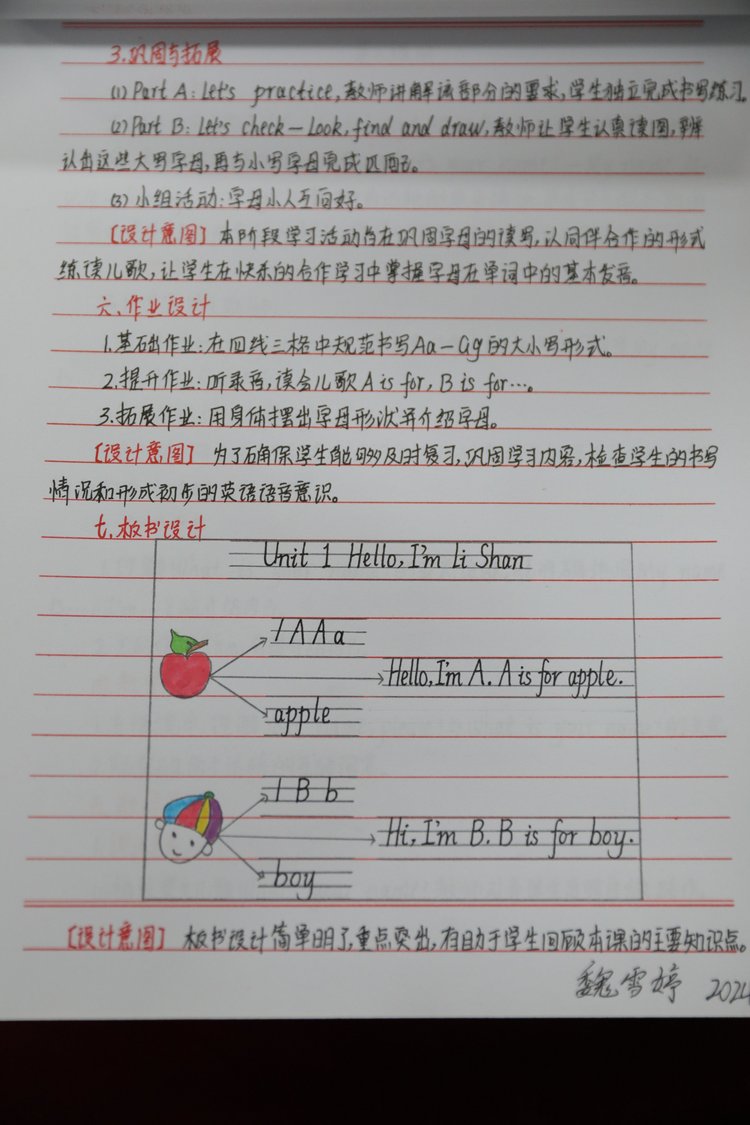 3.巩固与拓展
(1) Part A: Let's practice,教师讲解该部分的要求,学生独立完成书写练习。
(2) Part B: Let's check—Look, find and draw,教师让学生认真读图,辨
认出这些大写字母,再与小写字母完成匹配。
(3) 小组活动:字母小人互问好。
[设计意图] 本阶段学习活动旨在巩固字母的读写,以同伴合作的形式
练读儿歌,让学生在快乐的合作学习中掌握字母在单词中的基本发音。
六、作业设计
1.基础作业:在四线三格中规范书写Aa—Gg的大小写形式。
2.提升作业:听录音,读会儿歌 A is for, B is for…。
3.拓展作业:用身体摆出字母形状并介绍字母。
[设计意图] 为了确保学生能够及时复习,巩固学习内容,检查学生的书写
情况和形成初步的英语语音意识。
七、板书设计
Unit 1 Hello, I'm Li Shan
/ A A a
Hello, I'm A. A is for apple.
apple
/ B b
Hi, I'm B. B is for boy.
boy
[设计意图] 板书设计简单明了,重点突出,有助于学生回顾本课的主要知识点。
魏雪婷 2024